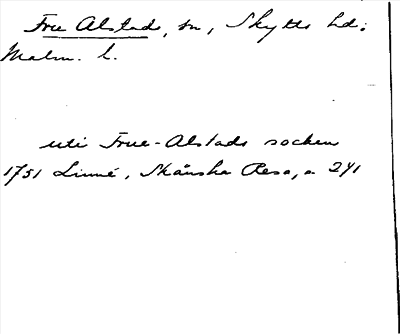 Frue Alstad, sn, Skytts hd:
Malm. l.
uti Frue-Alstads socken
1751 Linné, Skånska Resa, s 241